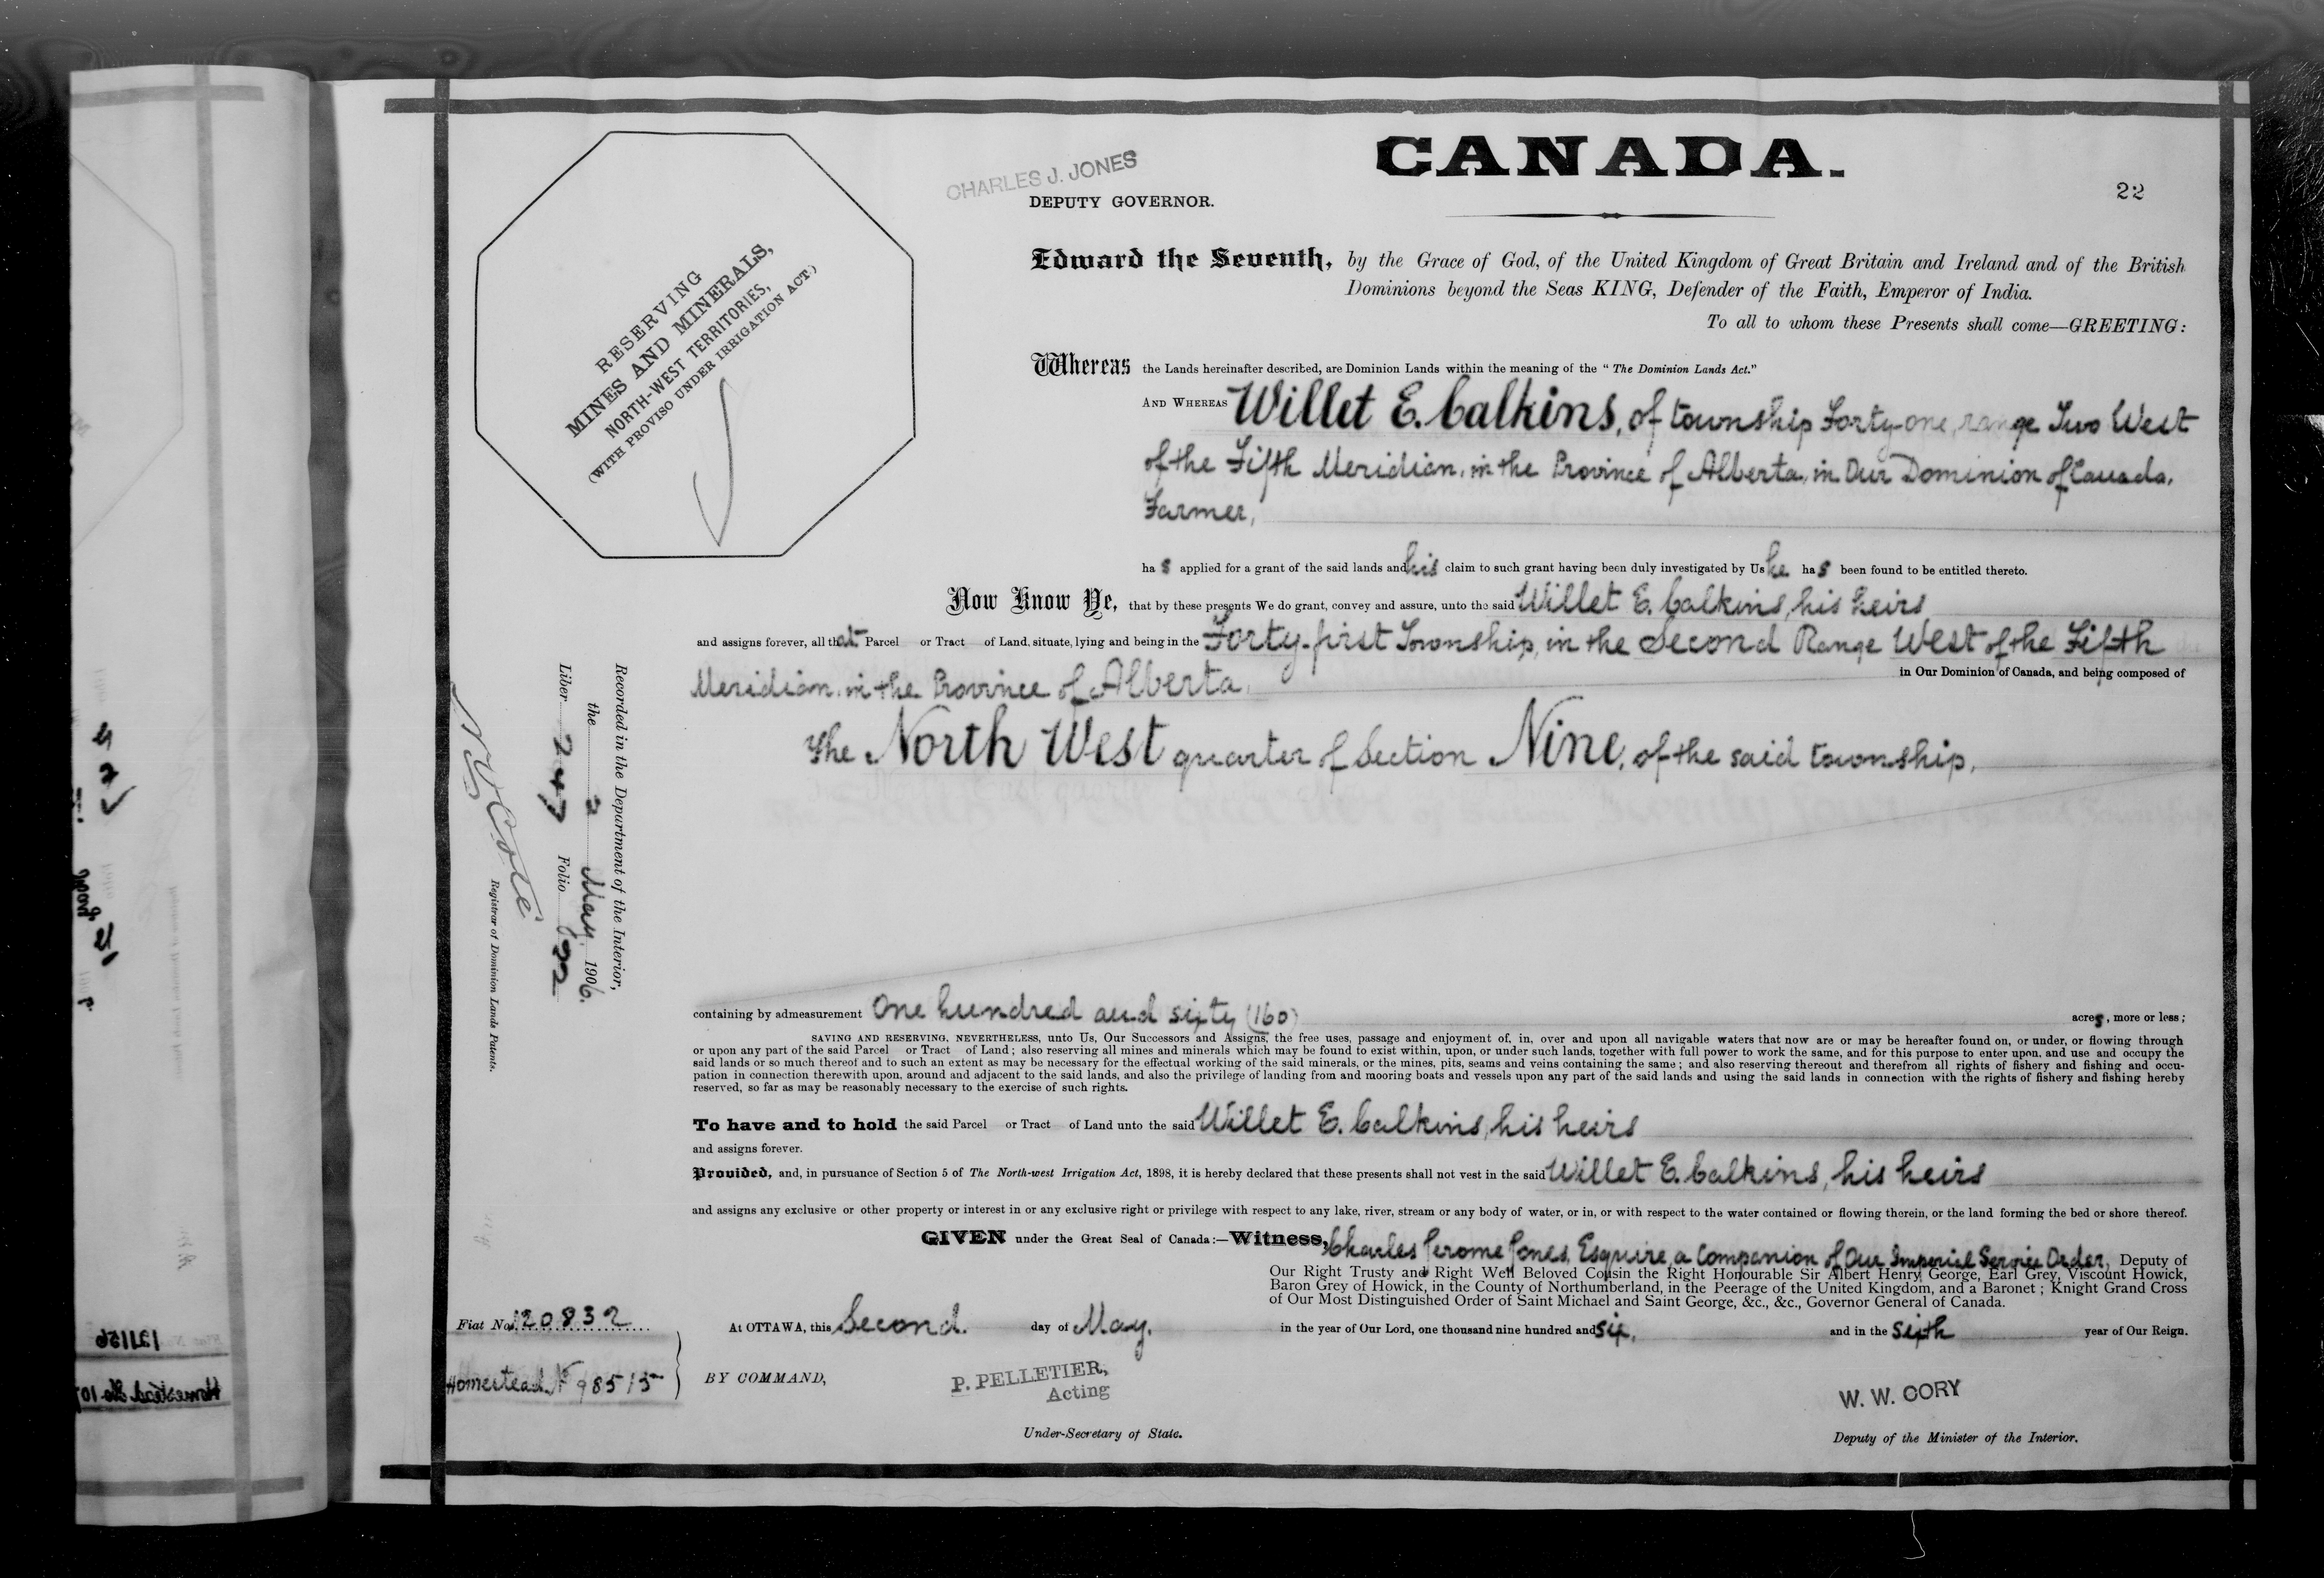 CANADA.
CHARLES J. JONES
DEPUTY GOVERNOR.
22
RESERVING
MINES AND MINERALS,
NORTH-WEST TERRITORIES,
(WITH PROVISO UNDER IRRIGATION ACT.)
Edward the Seventh, by the Grace of God, of the United Kingdom of Great Britain and Ireland and of the British
Dominions beyond the Seas KING, Defender of the Faith, Emperor of India.
To all to whom these Presents shall come—GREETING:
Whereas the Lands hereinafter described, are Dominion Lands within the meaning of the "The Dominion Lands Act."
AND WHEREAS Willet E. Calkins, of township Forty-one, range Two West
of the Fifth Meridian, in the Province of Alberta, in Our Dominion of Canada,
Farmer,
has applied for a grant of the said lands and his claim to such grant having been duly investigated by Us he has been found to be entitled thereto.
Now Know Ye, that by these presents We do grant, convey and assure, unto the said Willet E. Calkins, his heirs
and assigns forever, all that Parcel or Tract of Land, situate, lying and being in the Forty-first Township, in the Second Range West of the Fifth
Meridian, in the Province of Alberta, in Our Dominion of Canada, and being composed of
The North West quarter of Section Nine, of the said township,
containing by admeasurement One hundred and sixty (160) acres, more or less;
SAVING AND RESERVING, NEVERTHELESS, unto Us, Our Successors and Assigns, the free uses, passage and enjoyment of, in, over and upon all navigable waters that now are or may be hereafter found on, or under, or flowing through
or upon any part of the said Parcel or Tract of Land; also reserving all mines and minerals which may be found to exist within, upon, or under such lands, together with full power to work the same, and for this purpose to enter upon, and use and occupy the
said lands or so much thereof and to such an extent as may be necessary for the effectual working of the said minerals, or the mines, pits, seams and veins containing the same; and also reserving thereout and therefrom all rights of fishery and fishing and occu-
pation in connection therewith upon, around and adjacent to the said lands, and also the privilege of landing from and mooring boats and vessels upon any part of the said lands and using the said lands in connection with the rights of fishery and fishing hereby
reserved, so far as may be reasonably necessary to the exercise of such rights.
To have and to hold the said Parcel or Tract of Land unto the said Willet E. Calkins, his heirs
and assigns forever.
Provided, and, in pursuance of Section 5 of The North-west Irrigation Act, 1898, it is hereby declared that these presents shall not vest in the said Willet E. Calkins, his heirs
and assigns any exclusive or other property or interest in or any exclusive right or privilege with respect to any lake, river, stream or any body of water, or in, or with respect to the water contained or flowing therein, or the land forming the bed or shore thereof.
GIVEN under the Great Seal of Canada:—Witness, Charles Jerome Jones, Esquire, a Companion of Our Imperial Service Order, Deputy of
Our Right Trusty and Right Well Beloved Cousin the Right Honourable Sir Albert Henry George, Earl Grey, Viscount Howick,
Baron Grey of Howick, in the County of Northumberland, in the Peerage of the United Kingdom, and a Baronet; Knight Grand Cross
of Our Most Distinguished Order of Saint Michael and Saint George, &c., &c., Governor General of Canada.
At OTTAWA, this Second day of May, in the year of Our Lord, one thousand nine hundred and six, and in the sixth year of Our Reign.
BY COMMAND,
P. PELLETIER,
Acting
Under-Secretary of State.
W. W. CORY
Deputy of the Minister of the Interior.
Fiat No. 120832
Homestead No 98515
Recorded in the Department of the Interior,
the 2 May, 1906.
Liber 247 Folio 22
N O Coté
Registrar of Dominion Lands Patents.